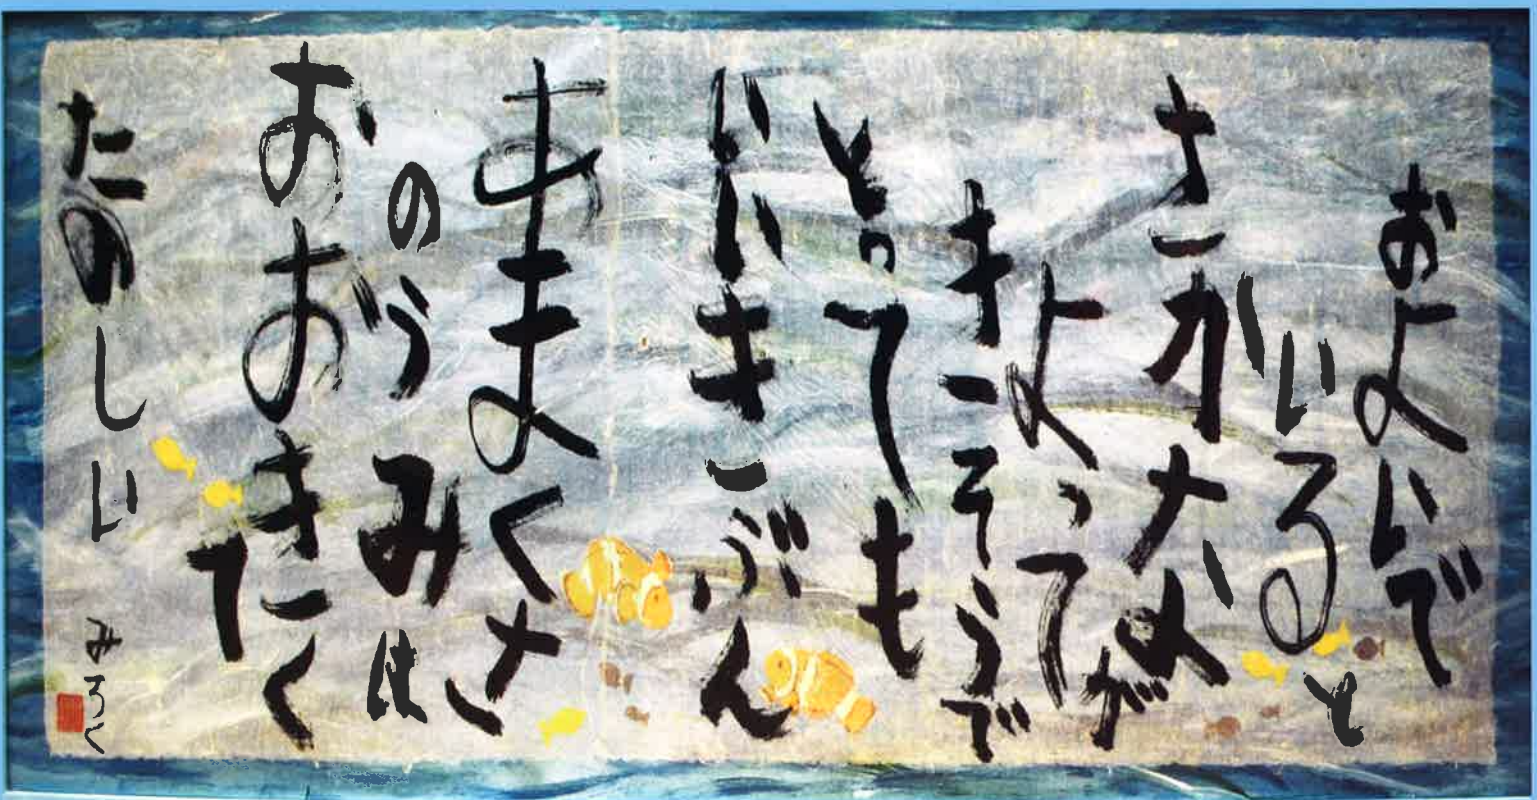 およいで
いると
さかなが
よって
きそうで
とっても
いいきぶん
あまくさ
のうみは
おおきくて
たのしい
みろく